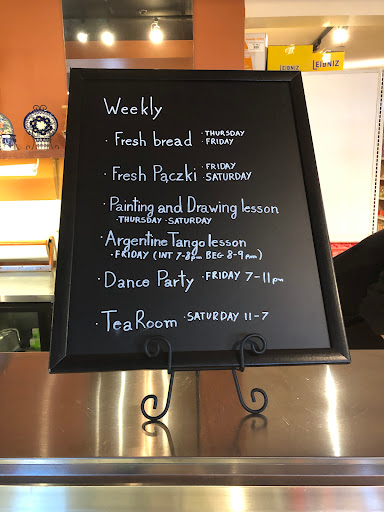 LEIBNIZ
LEIBNIZ
Weekly
· Fresh bread · THURSDAY
· FRIDAY
· Fresh Pączki · FRIDAY
· SATURDAY
· Painting and Drawing lesson
· THURSDAY · SATURDAY
· Argentine Tango lesson
· FRIDAY (INT 7-8pm BEG 8-9pm)
· Dance Party · FRIDAY 7-11pm
· Tea Room · SATURDAY 11-7